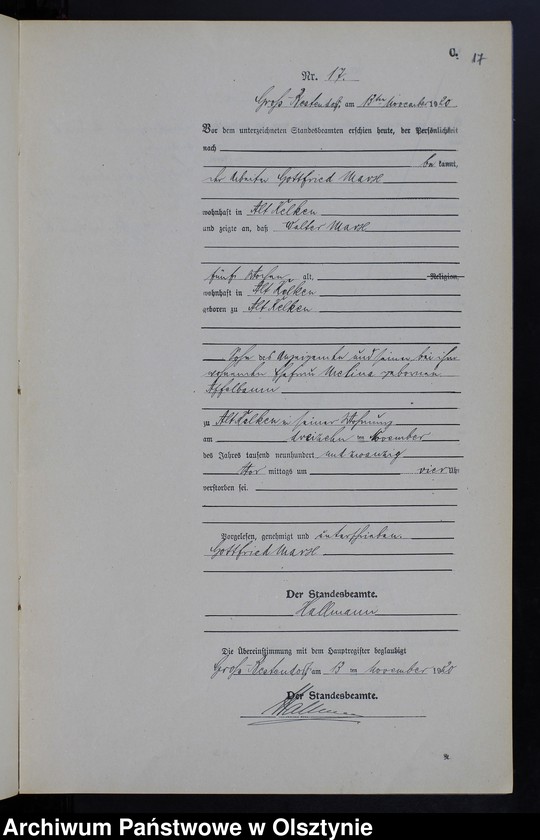 C.
17
Nr. 17.
Groß am 13ten November 1920
Vor dem unterzeichneten Standesbeamten erschien heute, der Persönlichkeit
nach
be kannt,
der Arbeiter Gottfried Marx
wohnhaft in Alt Kelken
und zeigte an, daß Walter Marx
fünf Wochen alt, Religion,
wohnhaft in Alt Kelken
geboren zu Alt Kelken
Sohn des Anzeigenden und seiner bei ihm
wohnenden Ehefrau geborenen
Apfelbaum
zu Alt Kelken in seiner Wohnung
am dreizehn ten November
des Jahres tausend neunhundert und zwanzig
Vor mittags um vier Uhr
verstorben sei.
Vorgelesen, genehmigt und unterschrieben.
Gottfried Marx
Der Standesbeamte.
Hallmann
Die Übereinstimmung mit dem Hauptregister beglaubigt
Groß am 13 ten November 1920
Der Standesbeamte.
Hallmann
Archiwum Państwowe w Olsztynie